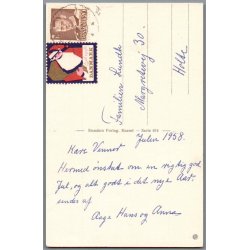 DANMARK
Familien Lundt
Margretevej 30.
Holte
Stenders Forlag. Eneret
Julen 1958.
Kære Venner
Hermed ønsket om en rigtig god
Jul, og alt godt i det nye Aar.
sendes af
Aage Hans og Anna